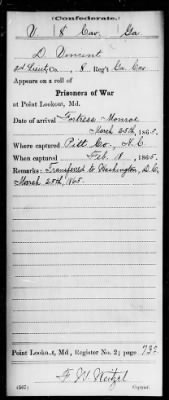 (Confederate.)
V 8 Cav. Ga.
D Vincent
2d Lieut, Co. , 8 Reg't Ga. Cav.
Appears on a roll of
Prisoners of War
at Point Lookout, Md.
Date of arrival Fortress Monroe
March 25th, 1865.
Where captured Pitt Co., N.C.
When captured Feb. 11, 1865.
Remarks: Transferred to Washington, D.C.
March 25th 1865.
Point Lookout, Md., Register No. 2; page 732
F. W. Weitzel
(567) Copyist.